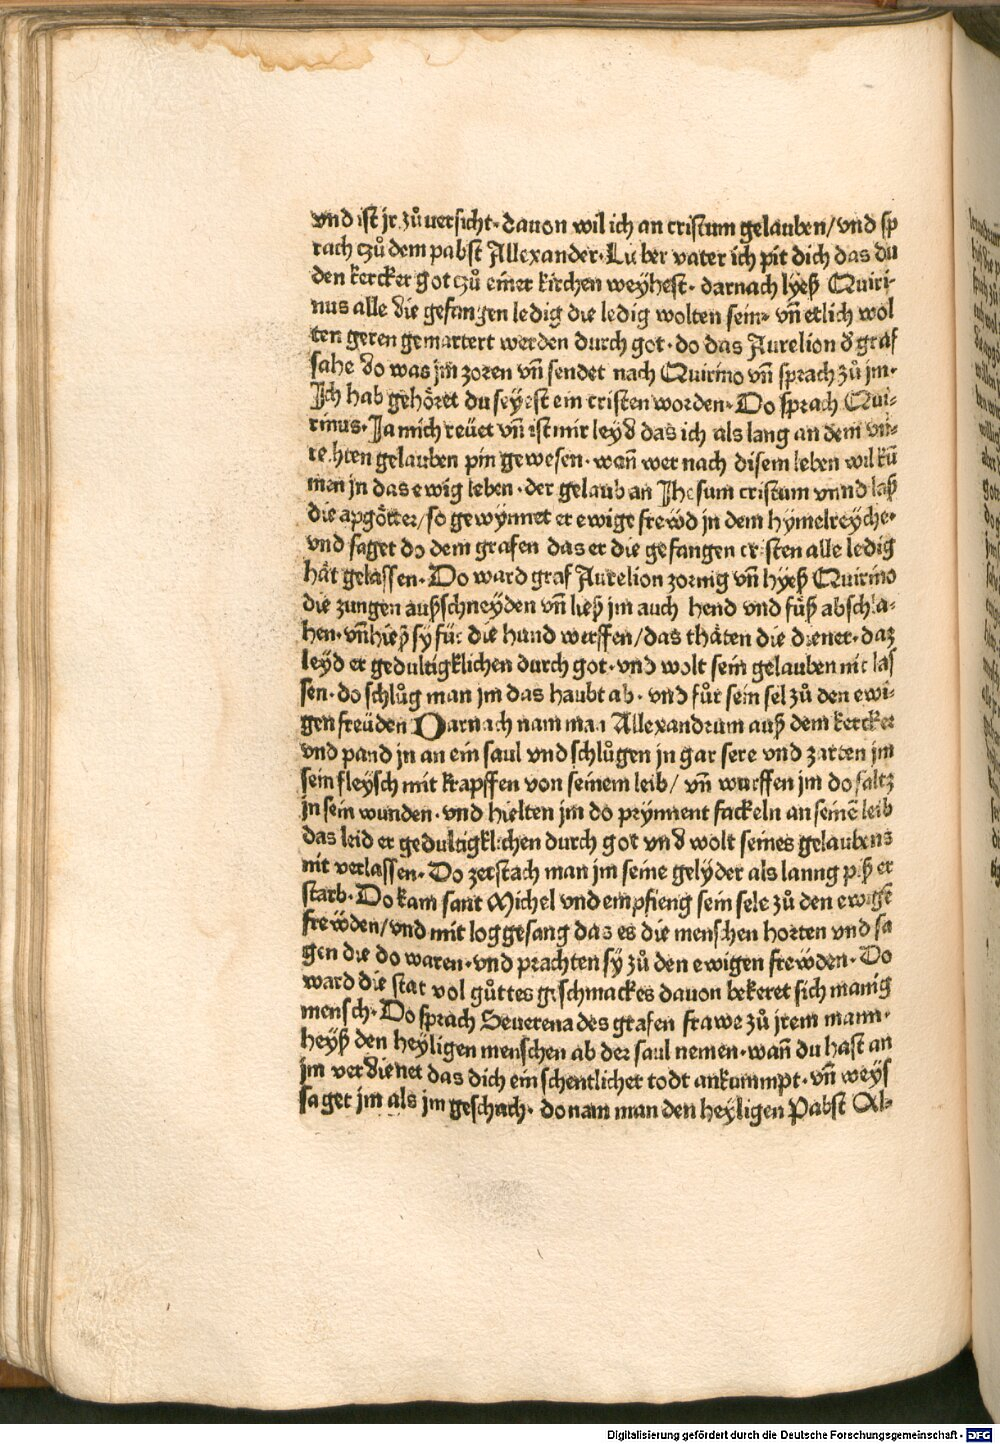 vnd ist jr zůuersicht· dauon wil ich an cristum gelauben/ vnd sp
rach czů dem pabst Allexander· Lieber vater ich pit dich das du
den kercker got czů einer kirchen weyhest· darnach lyeß Quiri-
nus alle die gefangen ledig die ledig wolten sein· vñ etlich wol
ten geren gemartert werden durch got· do das Aurelion d graf
sahe do was jm zoren vñ sendet nach Quirino vñ sprach zů jm·
Ich hab gehöret du seyest ein cristen worden· Do sprach Qui-
rinus· Ja mich reüet vñ ist mir leyd das ich als lang an dem vn-
rechten gelauben pin gewesen· wañ wer nach disem leben wil kū
men jn das ewig leben· der gelaub an Jhesum cristum vnnd laß
die apgötter/ so gewynnet er ewige frewd jn dem hymelreyche·
vnd saget do dem grafen das er die gefangen cristen alle ledig
hät gelassen· Do ward graf Aurelion zornig vñ hyeß Quirino
die zungen außschneyden vñ ließ jm auch hend vnd füß abschla-
hen· vñ hieß sy für die hund werffen/ das thäten die diener· daz
leyd er gedultigklichen durch got· vnd wolt sein gelauben nit las
sen· do schlůg man jm das haubt ab· vnd fůr sein sel zů den ewi-
gen freüden Darnach nam man Allexandrum auß dem kercker
vnd pand jn an ein saul vnd schlůgen jn gar sere vnd zarten jm
sein fleysch mit krapffen von seinem leib/ vñ wurffen jm do saltz
jn sein wunden· vnd hielten jm do prynnent fackeln an seinē leib
das leid er gedultigklichen durch got vnd wolt seines gelaubens
nit verlassen· Do zerstach man jm seine gelyder als lanng piß er
starb· Do kam sant Michel vnd empfieng sein sele zů den ewigē
frewden/ vnd mit loggesang das es die menschen horten vnd sa
gen die do waren· vnd prachten sy zů den ewigen frewden· Do
ward die stat vol gůttes geschmackes dauon bekeret sich manig
mensch· Do sprach Seuerena des grafen frawe zů jrem mann·
heyß den heyligen menschen ab der saul nemen· wañ du hast an
jm verdienet das dich ein schentlicher todt ankummpt· vñ weys
saget jm als jm geschach· do nam man den heyligen Pabst Al-
Digitalisierung gefördert durch die Deutsche Forschungsgemeinschaft - DFG